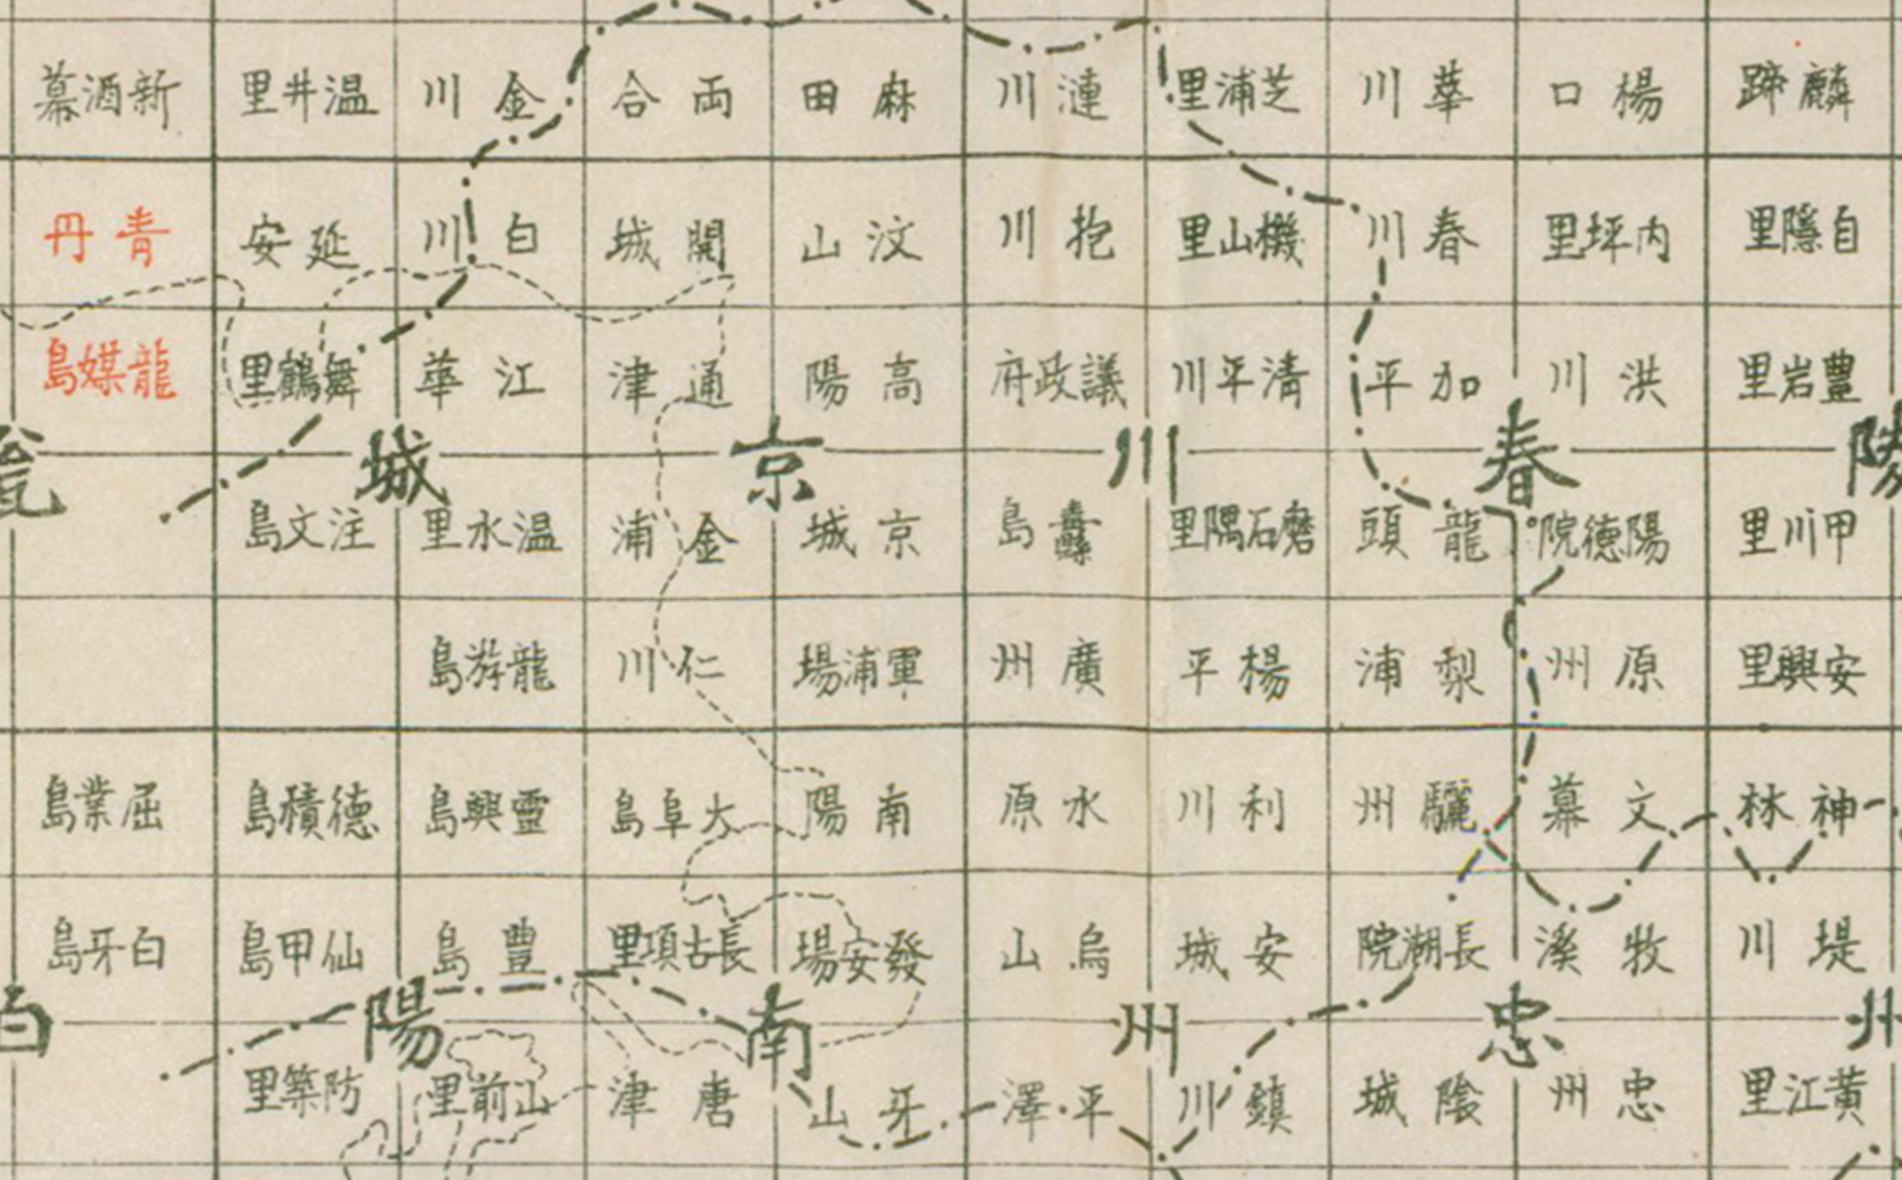 新酒幕
温井里
金川
兩合
麻田
漣川
芝浦里
華川
楊口
麟蹄
青丹
延安
白川
開城
汶山
抱川
機山里
春川
内坪里
自隱里
龍媒島
舞鶴里
江華
通津
高陽
議政府
清平川
加平
洪川
豊岩里
瓮
京城
春川
陵
注文島
温水里
金浦
京城
纛島
磨石隅里
龍頭
陽德院
甲川里
龍游島
仁川
軍浦場
廣州
楊平
梨浦
原州
安興里
屈業島
德積島
靈興島
大阜島
南陽
水原
利川
驪州
文幕
神林
白牙島
仙甲島
豊島
長古項里
發安場
烏山
安城
長湖院
牧溪
堤川
白
南陽
忠州
州
防築里
山前里
唐津
牙山
平澤
鎮川
陰城
忠州
黄江里